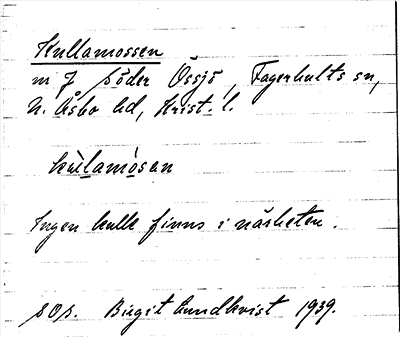 Kullamossen
m f söder Össjö, Fagerhults sn,
N. Åsbo hd, Krist. l.
kùlamòsen
Ingen kulle finns i närheten.
SOS. Birgit Lundkvist 1939.